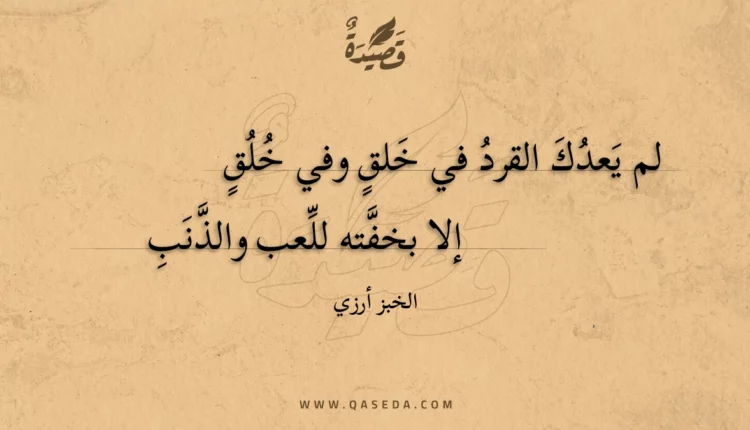 قَصِيْدَةٌ
لم يَعدُكَ القردُ في خَلقٍ وفي خُلُقٍ
إلا بخفَّته للِّعب والذَّنَبِ
الخبز أرزي
WWW.QASEDA.COM